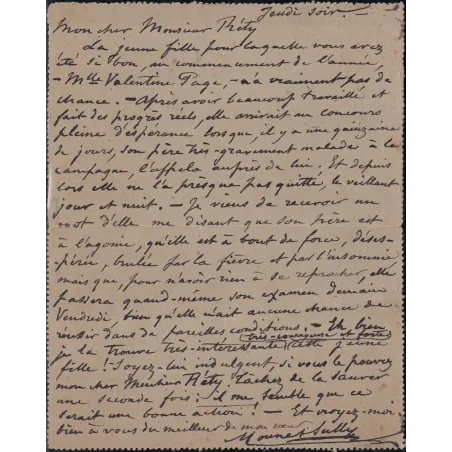 Jeudi soir. —
Mon cher Monsieur Réty
La jeune fille pour laquelle vous avez
été si bon, au commencement de l'année,
— Mlle Valentine Page, — n'a vraiment pas de
chance. — Après avoir beaucoup travaillé et
fait des progrès réels, elle arrivait au concours
pleine d'espérance lorsque, il y a une quinzaine
de jours, son père très-gravement malade à la
campagne, l'appela auprès de lui. Et depuis
lors elle ne l'a presque pas quitté, le veillant
jour et nuit. — Je viens de recevoir un
mot d'elle me disant que son père est
à l'agonie, qu'elle est à bout de force, déses-
-pérée, brulée par la fièvre et par l'insomnie
mais que, pour n'avoir rien à se reprocher, elle
passera quand-même son examen demain
Vendredi, bien qu'elle n'ait aucune chance de
réussir dans de pareilles conditions. — Eh bien
je la trouve très-intéressante (très-courageuse et forte) cette jeune
fille ! Soyez-lui indulgent, si vous le pouvez,
mon cher Monsieur Réty. Tachez de la sauver
une seconde fois : il me semble que ce
serait une bonne action ! — Et croyez-moi
bien à vous du meilleur de mon cœur.
Mounet-Sully